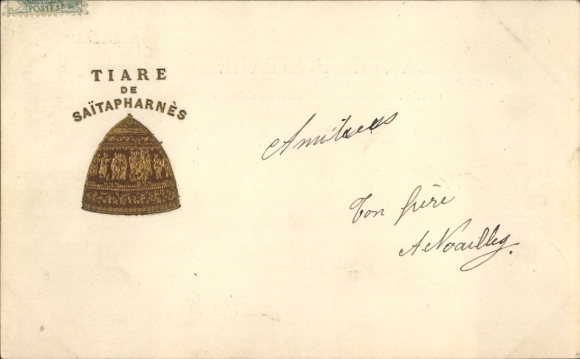 POSTES
TIARE
DE
SAÏTAPHARNÈS
Amitiées
Ton frère
A Noailly